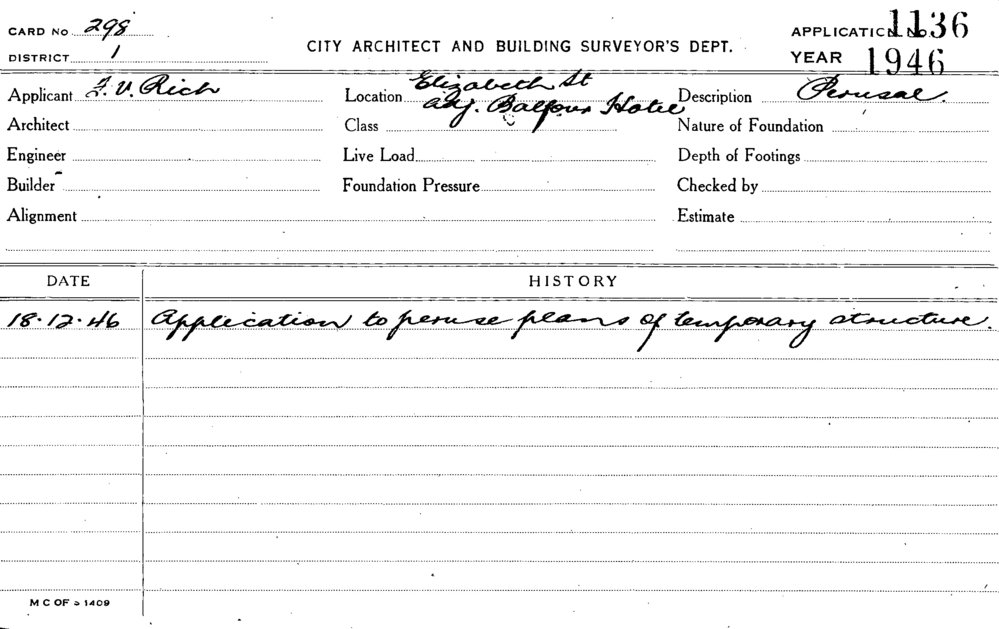 CARD No 298
DISTRICT 1
CITY ARCHITECT AND BUILDING SURVEYOR'S DEPT.
APPLICATION No. 1136
YEAR 1946
Applicant F. V. Rich
Location Elizabeth St
adj. Balfour Hotel
Description Perusal.
Architect
Class
Nature of Foundation
Engineer
Live Load
Depth of Footings
Builder
Foundation Pressure
Checked by
Alignment
Estimate
DATE HISTORY
18.12.46 Application to peruse plans of temporary structure.
M C OF S 1409